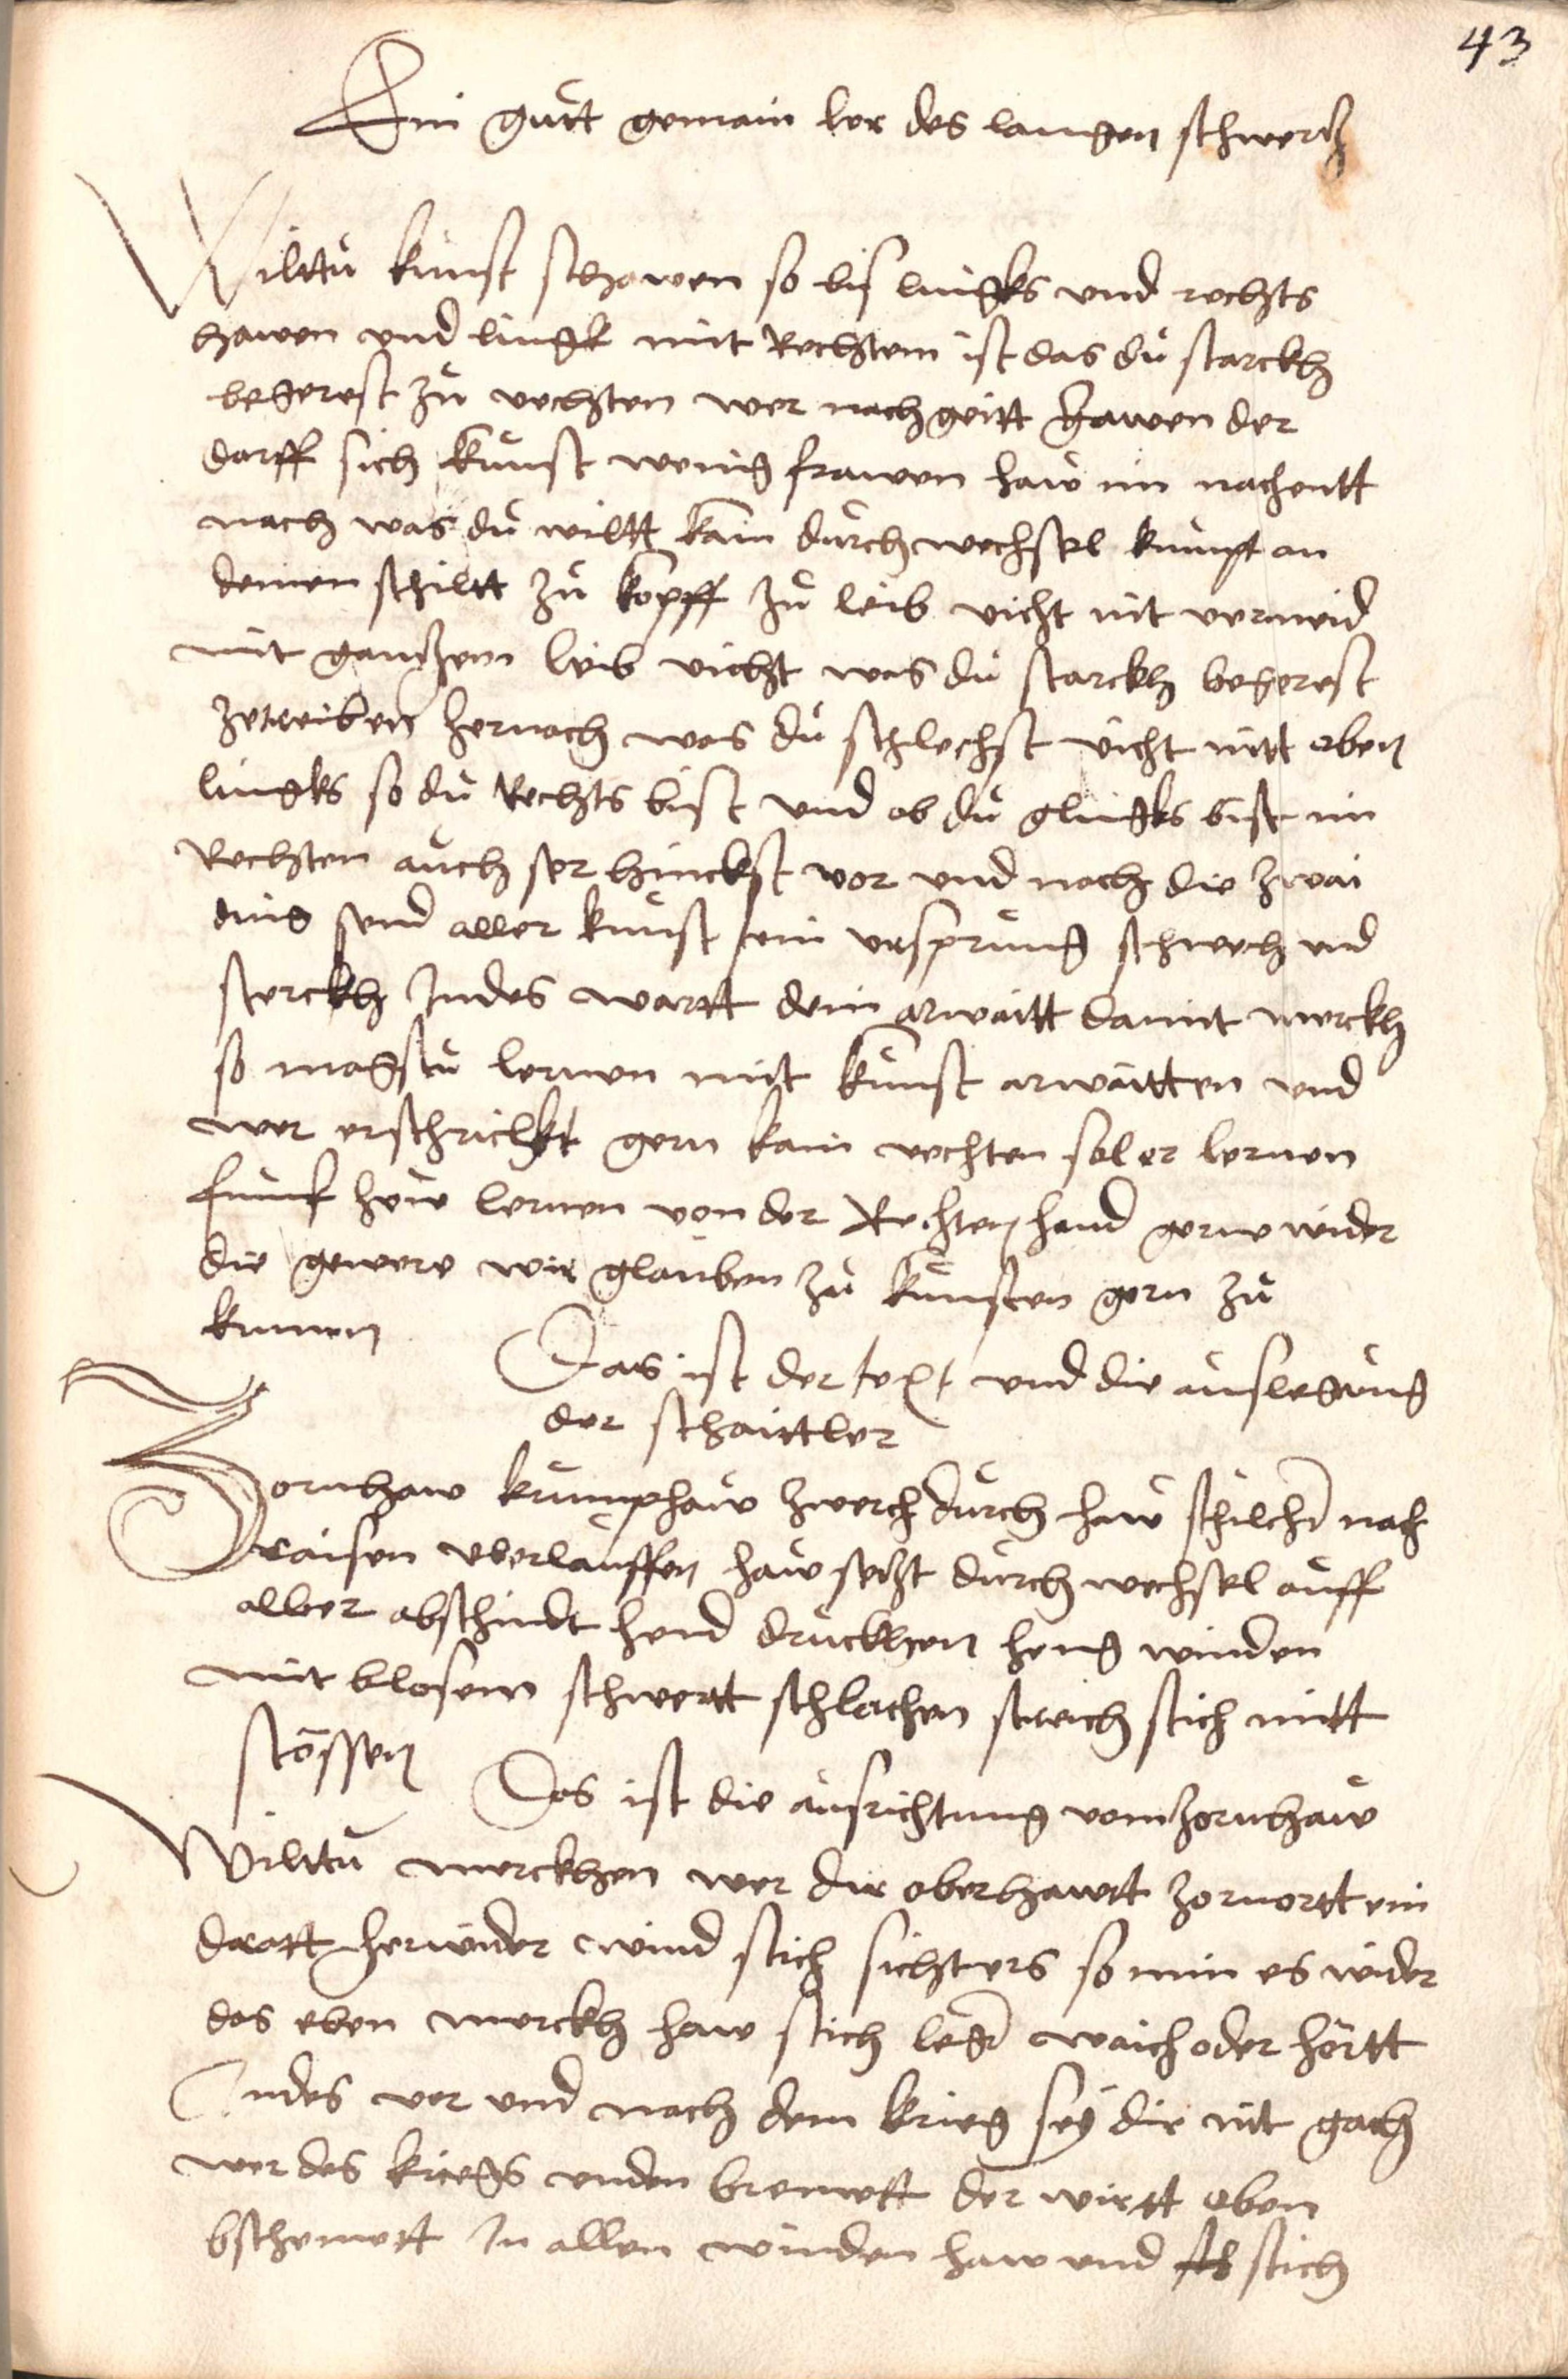 43
Ein gutt gemain ler des langen schwertz
Wilttu kunst schawen so bis lingks und rechts
hawen und lingk mit Rechtem ist das du starckh
begerest zu vechten wer nach geitt hawen der
darff sich kunst wenig frawen haw im nachentt
nach was du wiltt kain durch wechsel kumpt an
deinen schiltt zu kopff zu leib vicht nit vermeid
mit gantzem leib vicht was du starckh begerest
zetreiben hernach was du schlechst vicht nitt oben
lingks so du Rechts bist und ob du glingks bist im
Rechten auch ser hinckst vor und nach die zwai
ding send aller kunst ein ursprung schwech und
sterckh Indes wartt dein arwaitt damit merckh
so magstu lernen mit kunst arwaitten und
wer erschrickt gern kain vechten sol er lernen
funf hew lernen von der Rechten hand gerne wider
die gewere wir glauben zu kunsten gern zu
kumen
Das ist der text und die auslegung
der schaittler
Zornhaw krumphaw zwerch durch haw schilchr nach
raisen uberlauffen haw setzt durch wechsel auff
alber abschindt hend druckhen heng winden
mit blosem schwertt schlachen streich stich mitt
stössen
Das ist die ausrichtung vom zornhaw
Wilttu merckhen wer dir oberhawtt zornortt ein
dratt herwider wind stich sichters so nim es wider
des eben merckh haw stich legr waich oder hörtt
Indes vor und nach dem krieg sey dir nit gach
wer des kriegs unden bremett der wirtt oben
bschemett In allen winden haw und stich